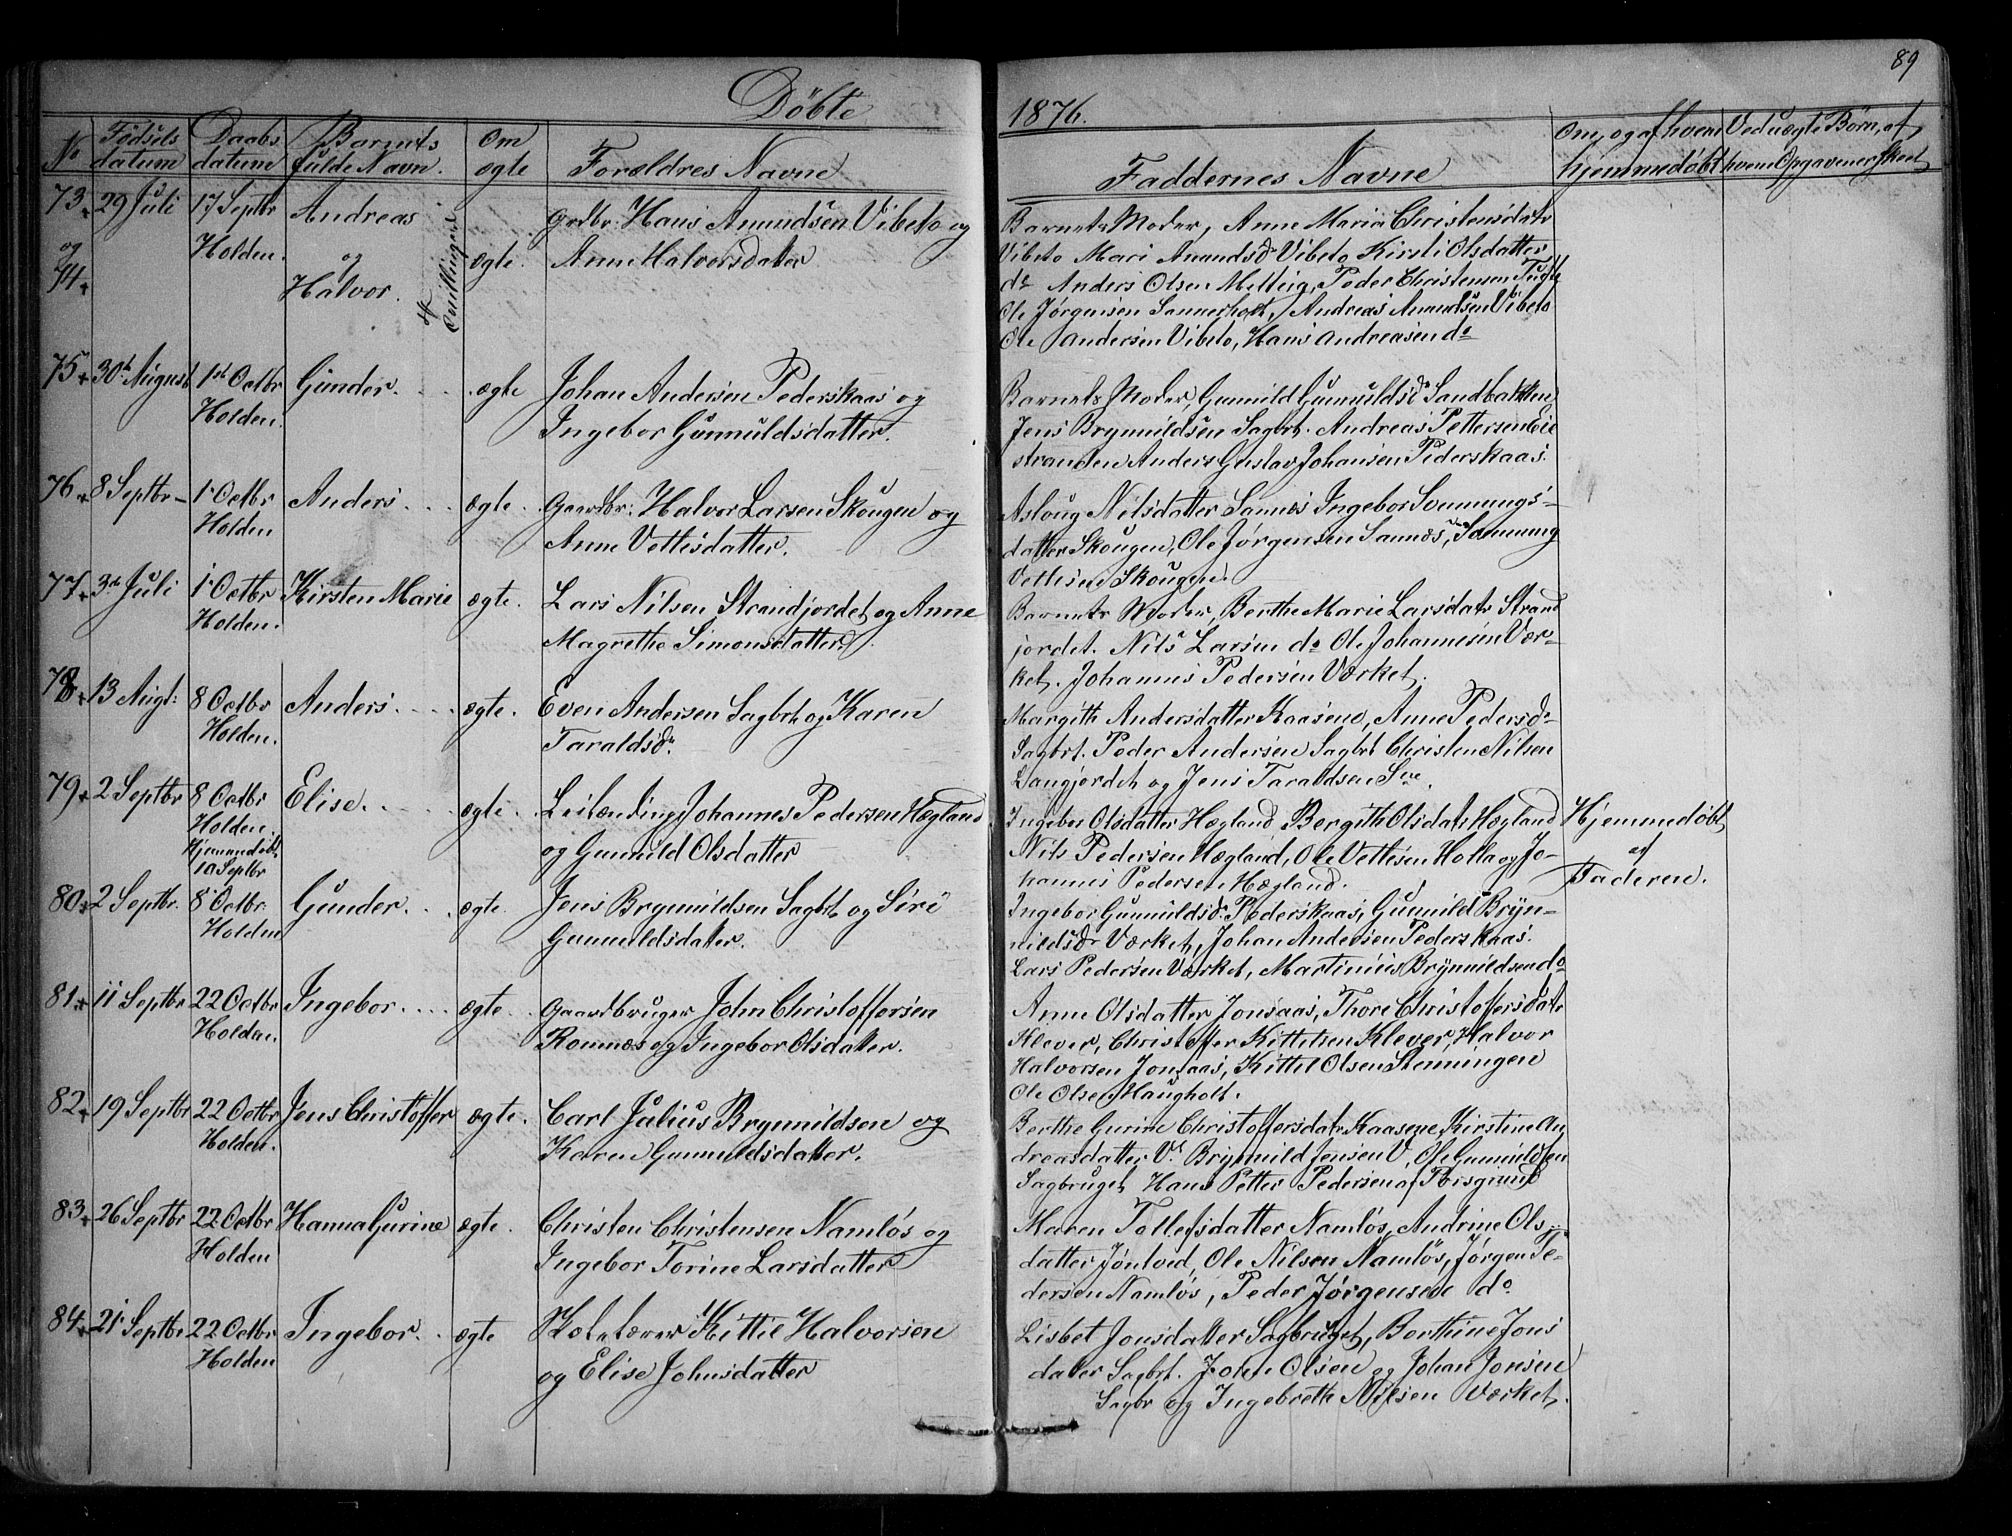 89
Döbte 1876.
No Födsels datum Daabs datum Barnets fulde Navn. Om ægte Forældres Navne Faddernes Navne Om, og af hvem hjemmedøbt Ved uægte Børn, af hvem Opgaven er skeet
73 29 Juli 17 Septbr Andreas Grdbr: Hans Amundsen Vibeto og
og Holden. og Tvillinger ægte. Anne Halvorsdatter
74 Halvor.
Barnets Moder, Anne Maria Christensdatr
Vibeto Mari Amundsdr Vibeto Kirsti Olsdatter
do Anders Olsen Melteig, Peder Christensen
Ole Jørgensen Sannerholt, Andreas Amundsen Vibeto
Ole Andersen Vibeto, Hans Andreasen do
75 30te August 1ste Octbr Gunder. ægte Johan Andersen Pederskaas og
Holden. Ingebor Gunnuldsdatter.
Barnets Moder, Gunnild Gunnuldsdr Sandbakken
Jens Brynnildsen Sagbrt. Andreas Pettersen Eie
stranden Anders Gustav Johansen Pederskaas.
76 8 Septbr 1 Octbr Anders ægte. Gaardbr: Halvor Larsen Skougen og
Holden Anne Vettisdatter.
Asloug Nilsdatter Sannes Ingebor Sonnungs-
datter Skougen, Ole Jørgensen Sannes, Sonnung
Vetlesen Skougen.
77 3die Juli 1 Octbr Kirsten Marie ægte. Lars Nilsen Strandjordet og Anne
Holden. Magrethe Simonsdatter.
Barnets Moder, Berthe Marie Larsdatr Strand
jordet. Nils Larsen do Ole Johannesen Vær-
ket. Johannes Pedersen Værket.
78 13 Augt: 8 Octbr Anders ægte. Even Andersen Sagbrt og Karen
Holden. Taraldsdr.
Margith Andersdatter Kaasene, Anne Pedersdr
Sagbrt. Peder Andersen Sagbrt Christen Nilsen
Langjordet og Jens Taraldsen
79 2 Septbr 8 Octbr Elise. ægte. Leilænding Johannes Pedersen Hægland
Holden. og Gunnild Olsdatter
Hjemmedøbt
10 Septbr
Ingebor Olsdatter Hægland Bergith Olsdatr Hægland
Nils Pedersen Hægland, Ole Vettesen Holla og Jo-
hannes Pedersen Hægland.
Hjemmedøbt
af
Faderen.
80 2 Septbr. 8 Octbr. Gunder. ægte. Jens Brynnildsen Sagbrt og Siri
Holden Gunnuldsdatter.
Ingebor Gunnuldsdr Pederskaas, Gunnild Bryn-
nildsdr Værket, Johan Andersen Pederskaas.
Lars Pedersen Værket, Martinius Brynnildsen do
81 11 Septbr 22 Octbr Ingebor. ægte. Gaardbruger John Christoffersen
Holden. Romnæs og Ingebor Olsdatter.
Anne Olsdatter Jonsaas, Thore Christoffersdatr
Klever, Christoffer Kittelsen Klever, Halvor
Halvorsen Jonsaas, Kittel Olsen Stenningen
Ole Olsen Haugholt.
82 19 Septbr 22 Octbr Jens Christoffer ægte. Carl Julius Brynnildsen og
Holden. Karen Gunnuldsdatter.
Berthe Gurine Christoffersdatr Kaasene, Kirstine An
dreasdatter V. Brynnild Jensen V, Ole Gunnuldsen
Sagbruget, Hans Petter Pedersen af Porsgrund
83 26 Septbr 22 Octbr Hanna Gurine ægte. Christen Christensen Namløs og
Holden Ingebor Torine Larsdatter
Maren Tollefsdatter Namløs, Andrine Ols-
datter Jöntved, Ole Nilsen Namløs, Jørgen Pe-
dersen Namløs, Peder Jørgensen do
84 21 Septbr 22 Octbr Ingebor. ægte Skolelærer Kittil Halvorsen
Holden og Elise Johnsdatter
Lisbet Jonsdatter Sagbruget, Berthine Jons
datter Sagbrt. John Olsen og Johan Jonsen
Sagbr og Ingebreth Nilsen Værket.